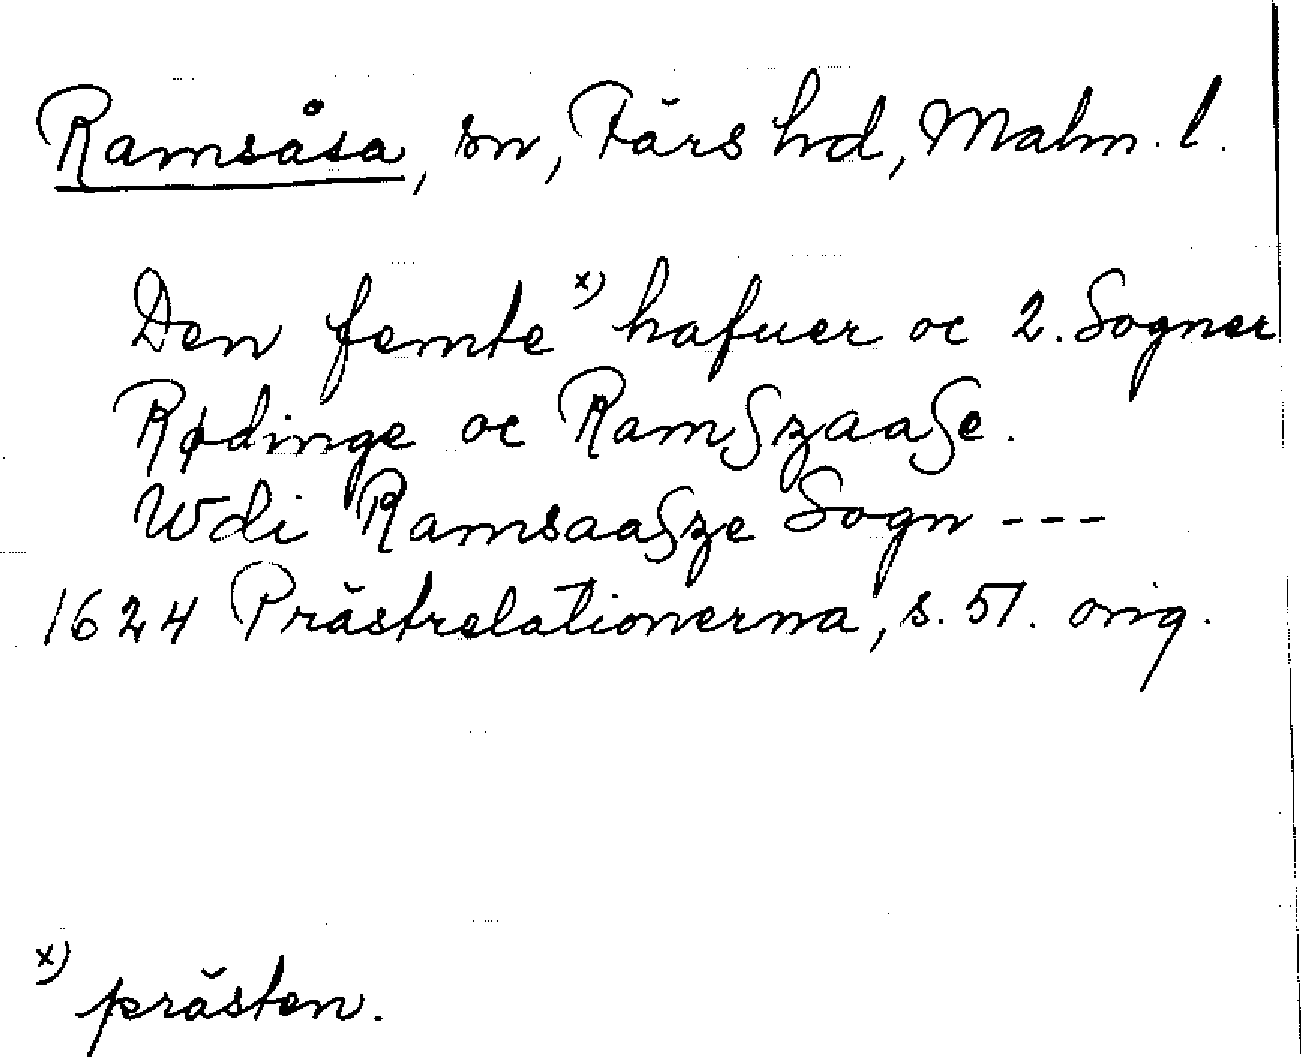 Ramsåsa, sn, Färs hd, Malm. l.
Den femte x) hafuer oc 2. Sogner
Rødinge oc Ramszaase.
Wdi Ramsaasze Sogn ---
1624 Prästrelationerna, s. 51. orig.
x) prästen.